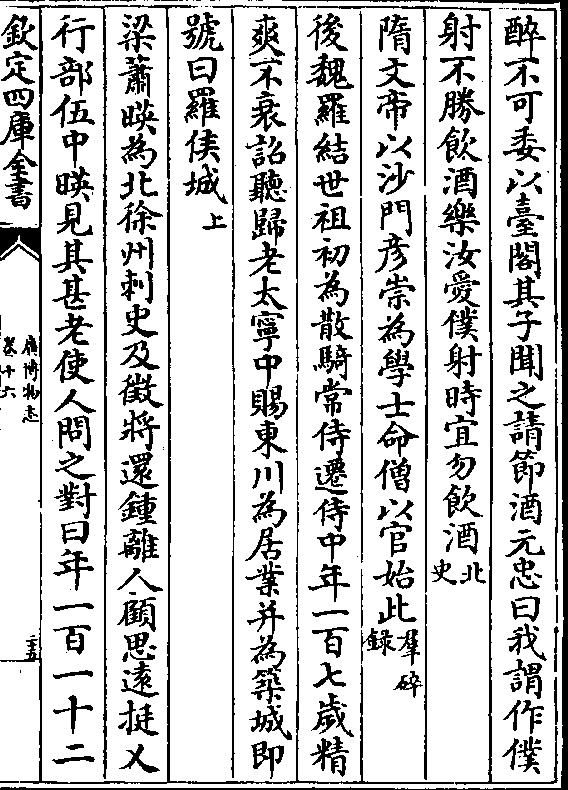 醉不可委以臺閣其子聞之請節酒元忠曰我謂作僕
射不勝飲酒樂汝愛僕射時宜勿飲酒北史
隋文帝以沙門彦崇為學士命僧以官始此羣碎錄
後魏羅結世祖初為散騎常侍遷侍中年一百七歲精
爽不衰詔聽歸老太寧中賜東川為居業并為築城即
號曰羅侯城上
梁蕭暎為北徐州刺史及徵將還鍾離人顧思遠挺乂
行部伍中暎見其甚老使人問之對曰年一百一十二
欽定四庫全書
廣博物志
卷十六
三五